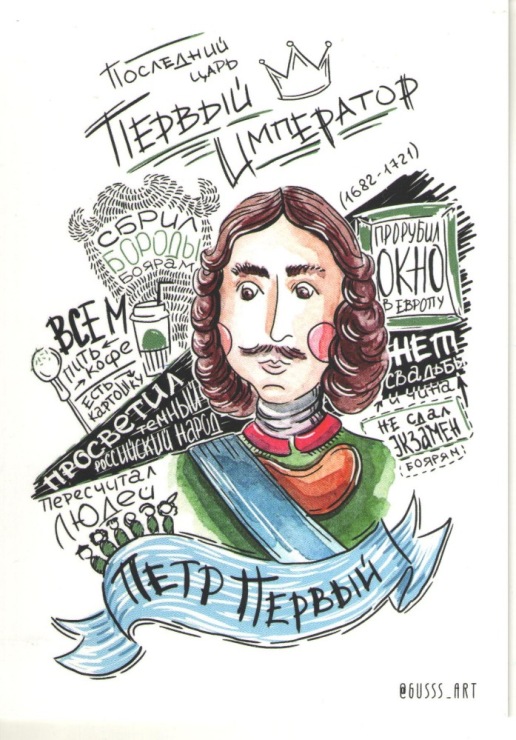 Последний
царь
Первый
Император
(1682-1721)
сбрил
бороды
боярам
прорубил
окно
в Европу
всем
пить
кофе
есть
картошку
нет
свадьбы
и чина
не сдал
экзамен
боярям
просветил
темный
российский народ
пересчитал
людей
Петр Первый!
@GUSSS_ART